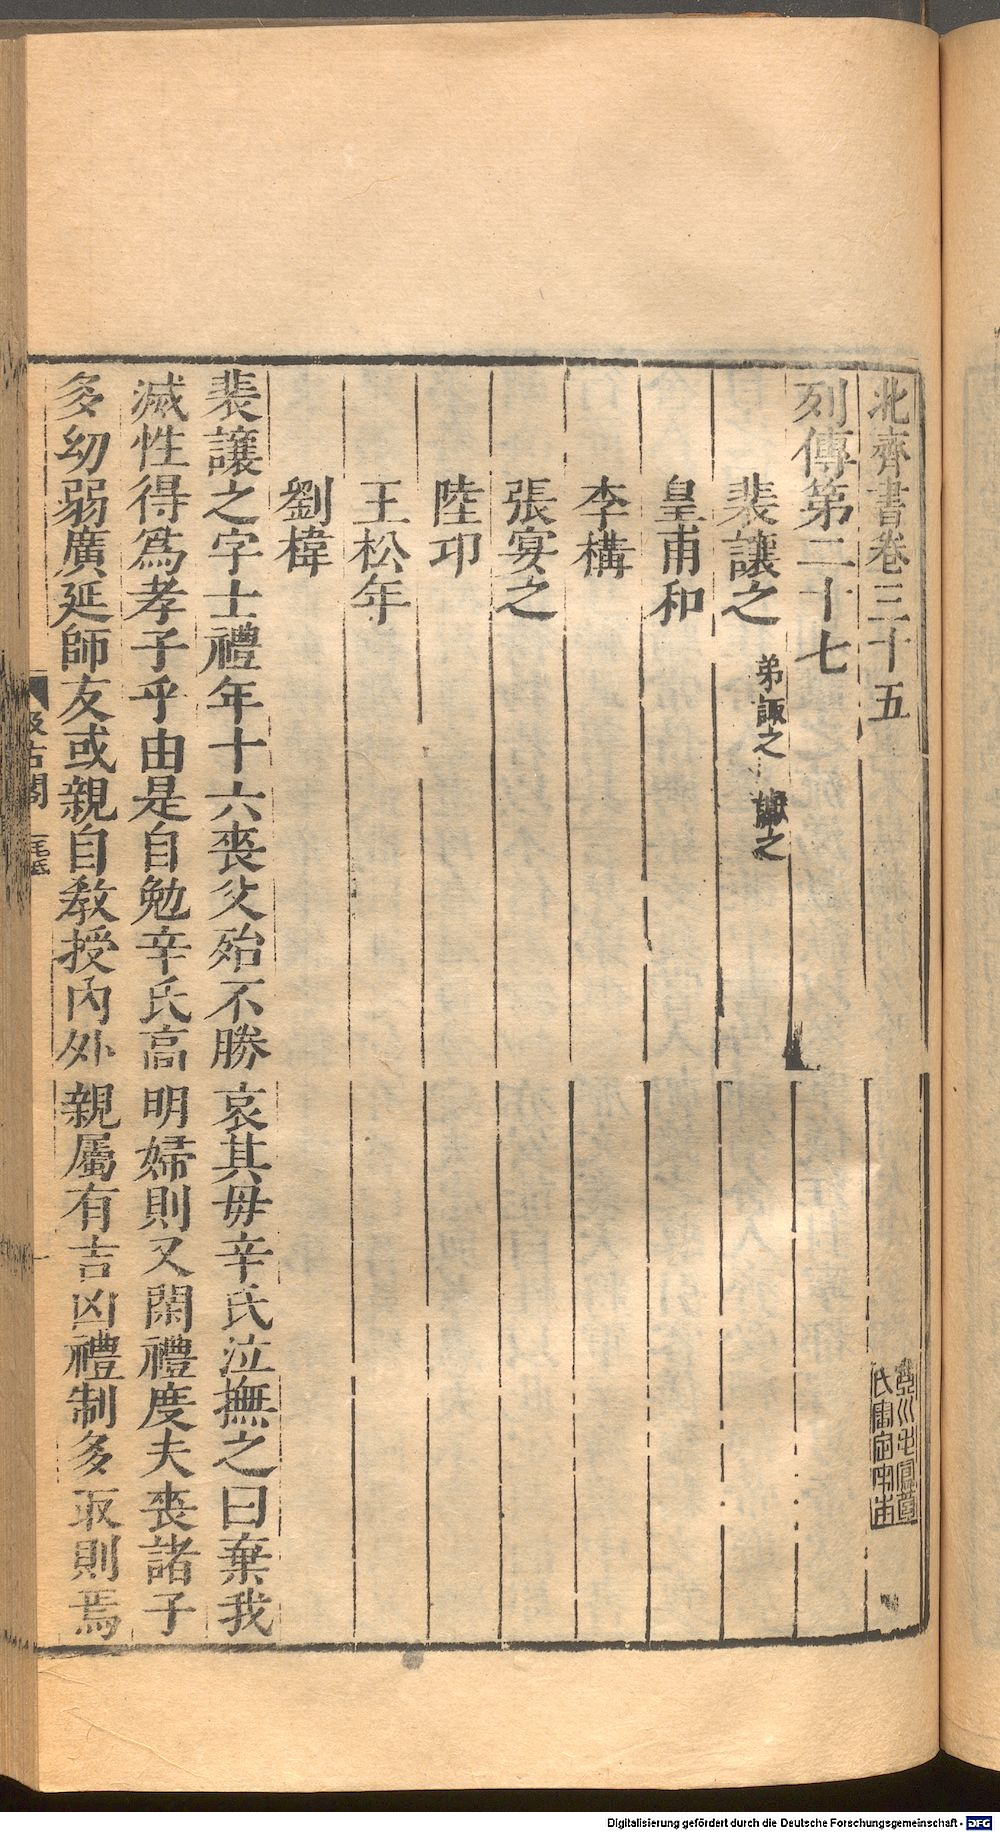 北齊書卷三十五
列傳第二十七
裴讓之 弟諏之 讞之
皇甫和
李構
張宴之
陸卬
王松年
劉禕
裴讓之字士禮年十六喪父殆不勝哀其毋辛氏泣撫之曰棄我
滅性得爲孝子乎由是自勉辛氏高明婦則又閑禮度夫喪諸子
多幼弱廣延師友或親自教授內外親屬有吉凶禮制多取則焉
汲古閣
毛氏
Digitalisierung gefördert durch die Deutsche Forschungsgemeinschaft - DFG